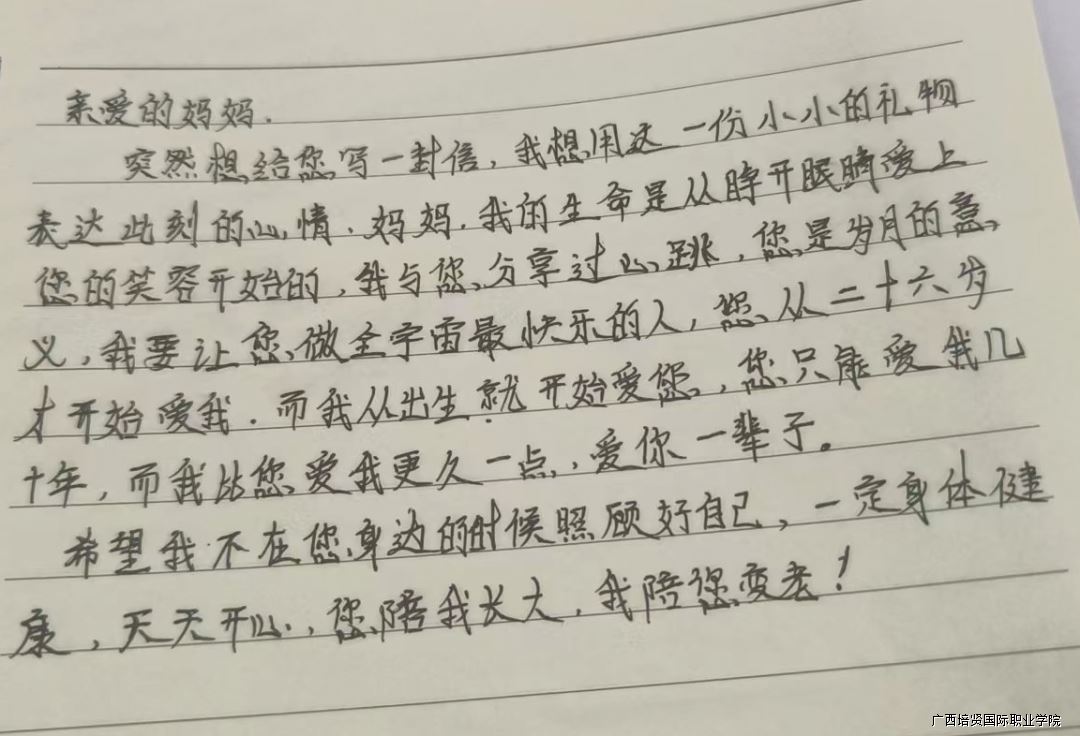 亲爱的妈妈.
突然想给您写一封信，我想用这一份小小的礼物
表达此刻的心情.妈妈.我的生命是从睁开眼睛爱上
您的笑容开始的，我与您分享过心跳，您是岁月的意
义，我要让您做全宇宙最快乐的人，您从二十六岁
才开始爱我.而我从出生就开始爱您，您只能爱我几
十年，而我比您爱我更久一点，爱你一辈子。
希望我不在您身边的时候照顾好自己，一定身体健
康，天天开心，您陪我长大，我陪您变老！
广西培贤国际职业学院